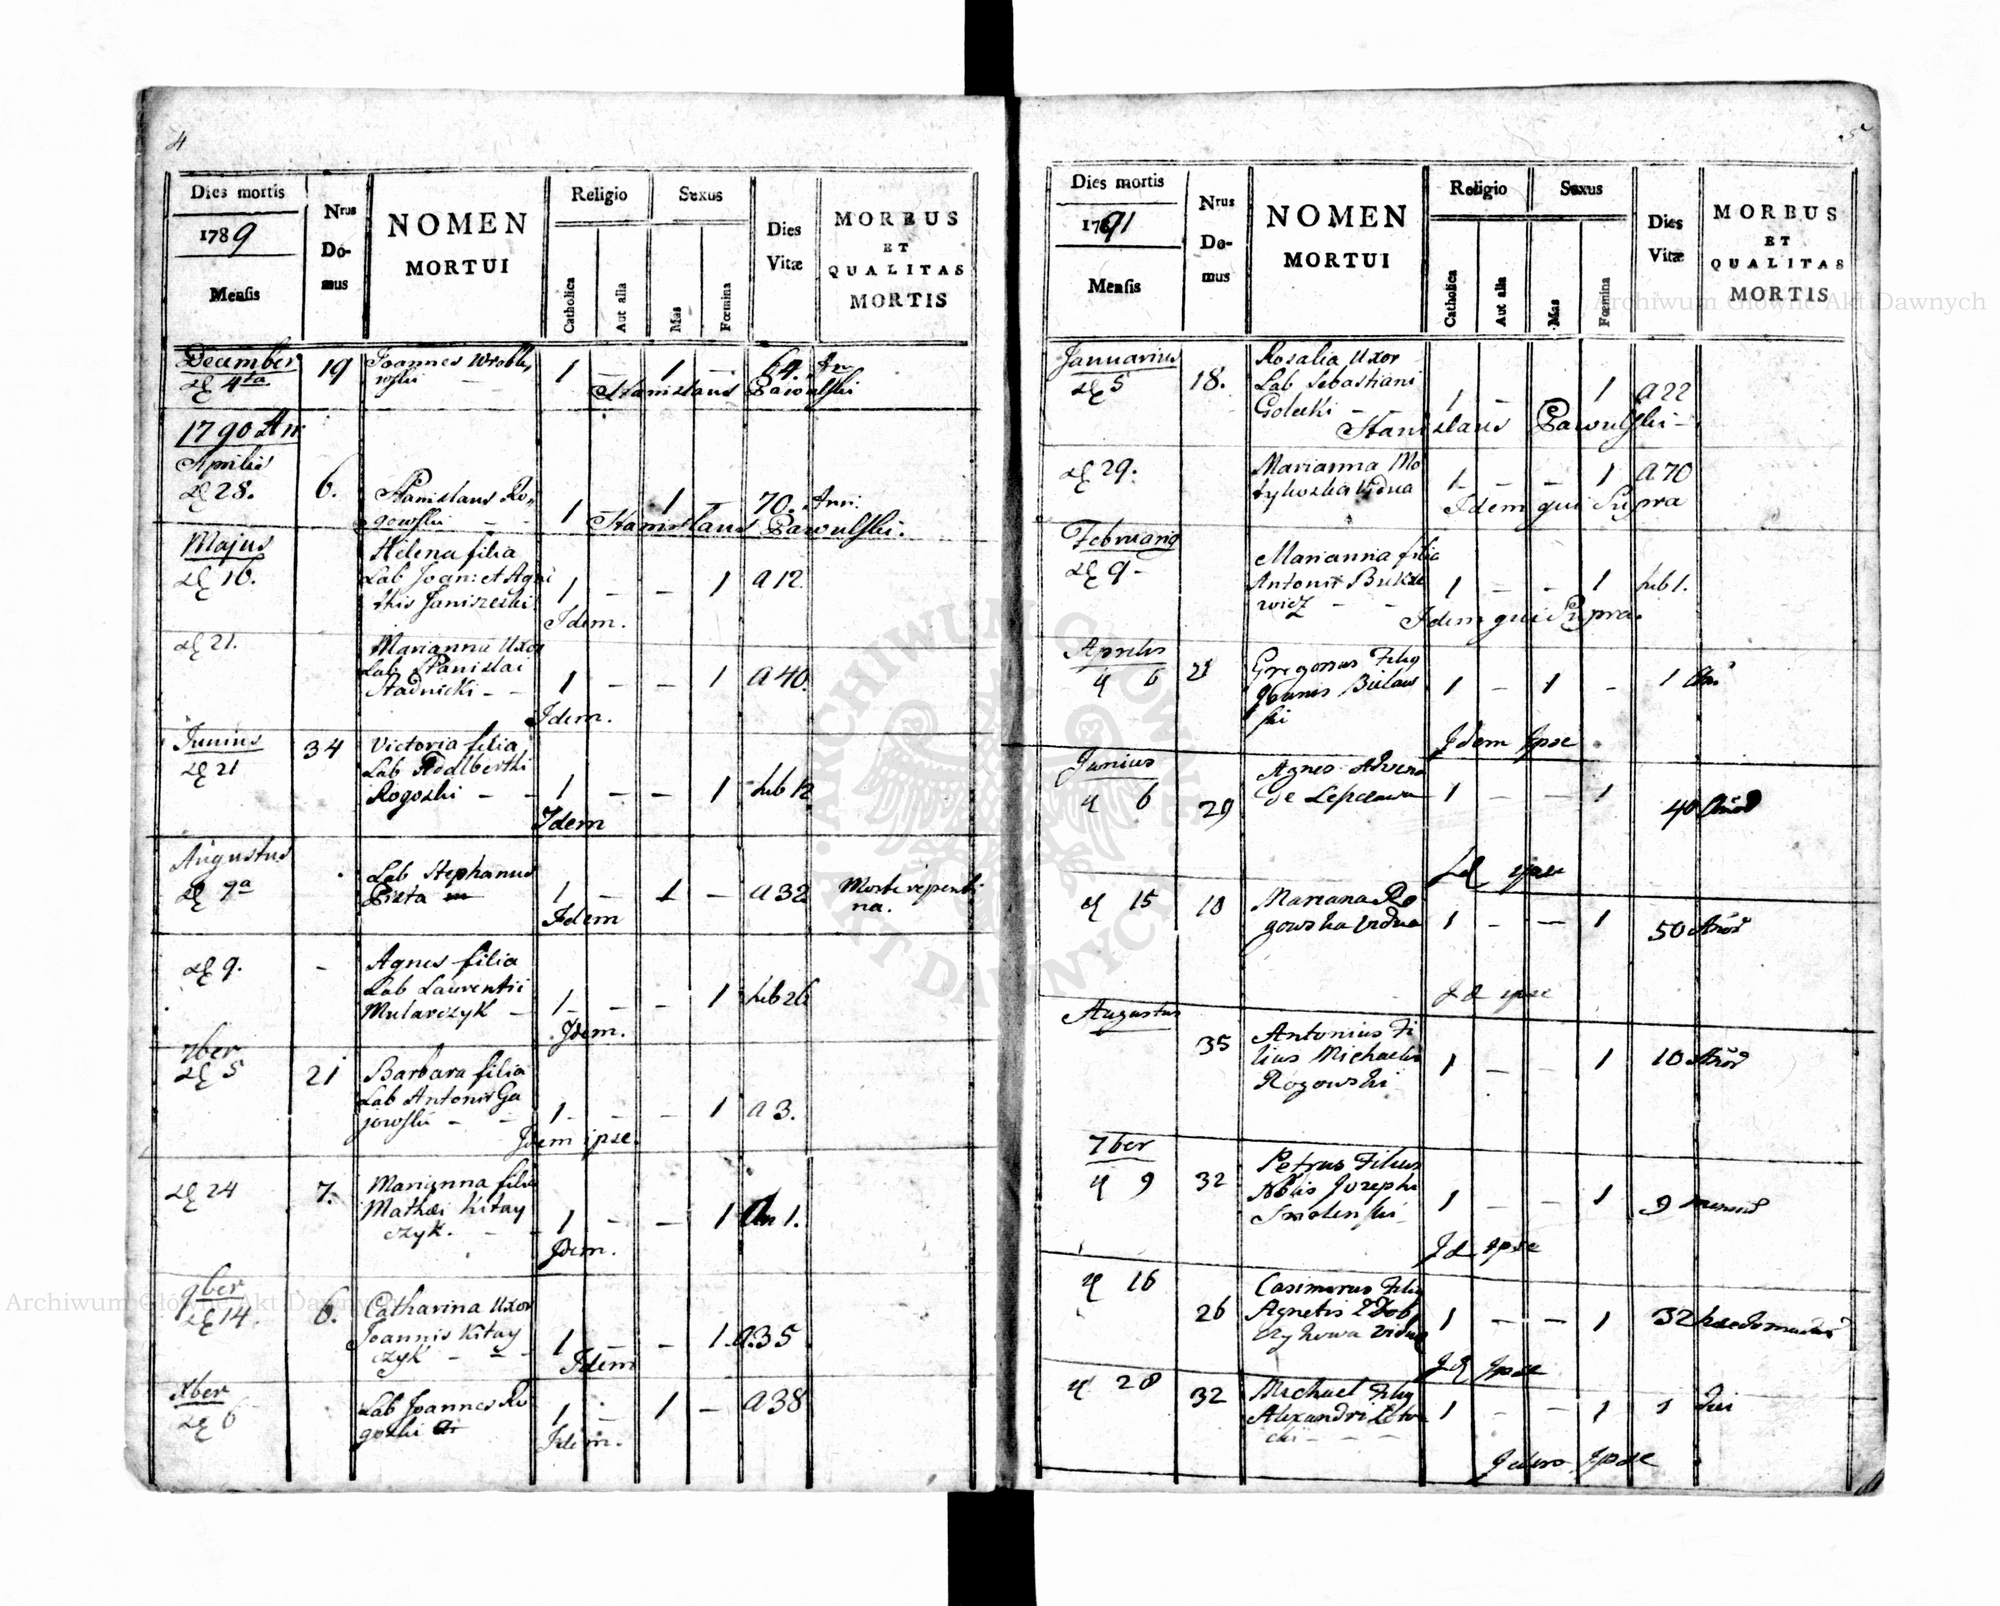 4
Dies mortis
1789
Mensis
Nrus
Do-
mus
NOMEN
MORTUI
Religio
Catholica
Aut alia
Sexus
Mas
Fœmina
Dies
Vitæ
MORBUS
ET
QUALITAS
MORTIS
December 19 Joannes Wroble,
4ta wski - 1 - 1 - 64. An
Stanislaus Pawulski
1790 An
Aprilis
28. 6. Stanislaus Ro,
gowski - - 1 1 - 70. Ann.
Stanislaus Pawulski.
Majus Helena filia
16. Lab Joan: et Agni
Janiszeski 1 - - 1 a 12
Idem.
21. Marianna Uxor
Lab Stanislai
Stadnicki - - 1 - - 1 a 40.
Idem.
Junius 34 Victoria filia
21 Lab Adalberthi
Rogoski - - 1 - - 1 heb 12
Idem
Augustus Lab Stephanus
7a Pieta 1 - 1 - a 32 Morte repenti
na.
Idem
9. - Agnes filia
Lab Laurentii
Mularczyk - 1 - - 1 heb 26
Idem.
7ber
5 21 Barbara filia
Lab Antonii Ga
jowski - - 1 - - 1 a 3.
Idem ipse.
24 7. Marianna filia
Mathæi Kitay
czyk. - - 1 - - 1 An 1.
Idem.
9ber
14. 6. Catharina Uxor
Joannis Kitay
czyk - - - 1 - - 1. a. 35
Idem
Xber
6 Lab Joannes Ro
goski 1 - 1 - a 38
Idem.
5
Dies mortis
1791
Mensis
Nrus
Do-
mus
NOMEN
MORTUI
Religio
Catholica
Aut alia
Sexus
Mas
Fœmina
Dies
Vitæ
MORBUS
ET
QUALITAS
MORTIS
Januarius Rosalia Uxor
5 18. Lab Sebastiani
Golecki - - 1 - 1 a 22
Stanislaus Pawulski -
29. Marianna Mo
tylwska Vidua 1 - - 1 a 70
Idem qui Supra
Marianna filia
9 - Antonii
wicz - - 1 - - 1 heb 1.
Idem qui Supra.
Aprilis
6 21 Gregorius
Joannis Bielaw
ski 1 - 1 - 1 An
Idem Ipse
Junius Agnes Advena
6 29 de 1 - - 1 40
Id ipse
15 10 Mariana Ro
gowska vidua 1 - - 1 50
Id ipse
Augustus
35 Antonius Fi
lius Michaelis
Rogowski 1 - - 1 10
7ber
9 32 Petrus Filius
Josephi
Smolenski 1 - - 1 9
Id ipse
16
26 Casimirus
Agnetis
1 - - 1 32
Id Ipse
28 32 Michael
Alexandri
cki - - - 1 - - 1 1
Idem Ipse
ARCHIWUM GŁÓWNE AKT DAWNYCH
Archiwum Główne Akt Dawnych
Archiwum Główne Akt Dawnych